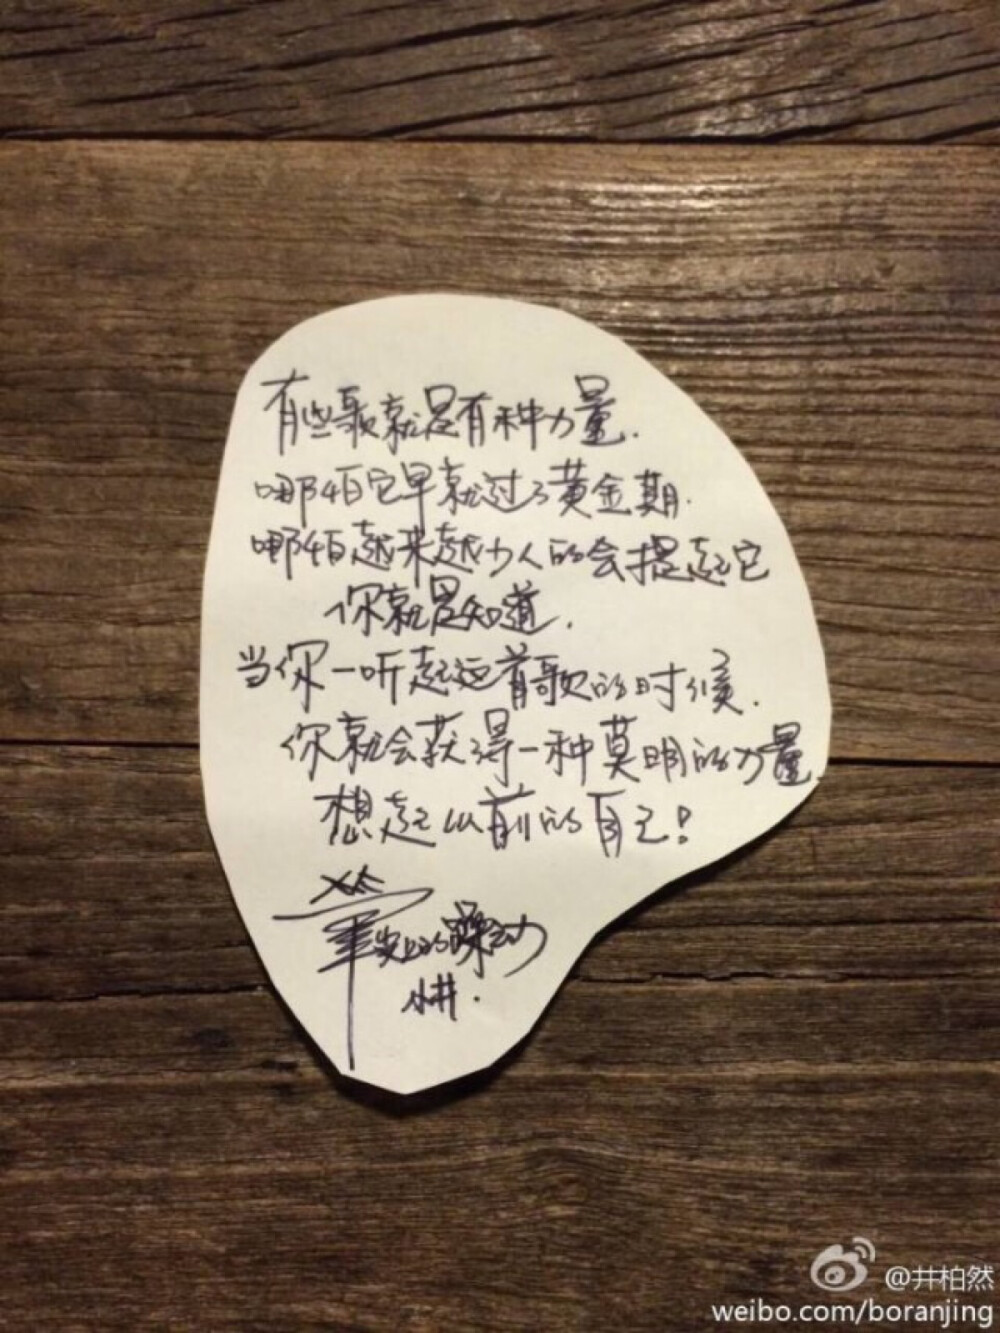 有些歌就是有种力量.
哪怕它早就过了黄金期.
哪怕越来越少人的会提起它
你就是知道.
当你一听起这首歌的时候.
你就会获得一种莫明的力量
想起以前的自己!
笔尖上的躁动
小井.
@井柏然
weibo.com/boranjing